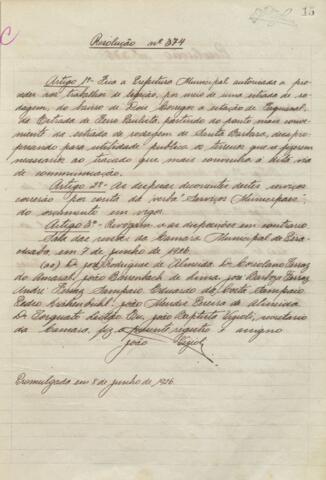 15
C
Resolução nº 374
Artigo 1º Fica a Prefeitura Municipal autorisada a pro-
ceder aos trabalhos de ligação, por meio de uma estrada de ro-
dagem, do bairro de Dois Corregos a estação de Taquaral,
da Estrada de Ferro Paulista, partindo do ponto mais conve-
niente da estrada de rodagem de Santa Barbara, desapro-
priando para utilidade publica os terrenos que se fizerem
necessarios ao traçado que mais convenha á bôa via
de communicação.
Artigo 2º As despesas decorrentes destes serviços
correrão por conta da verba "Serviços Municipaes"
do orçamento em vigor.
Artigo 3º Revogam-se as disposições em contrario
Sala das sessões da Camara Municipal de Pira-
cicaba, em 7 de junho de 1926.
(aa) Dr. José Rodrigues de Almeida, Dr. Coriolano Ferraz
do Amaral, João Behrenbach de Lima, José Barboza Ferraz
André Ferraz Sampaio, Eduardo da Costa Sampaio
Pedro Krahenbuhl, João Mendes Pereira de Almeida
Dr. Torquato Leitão. Eu, João Baptista Vizioli, secretario
da Camara, fiz o presente registro e assigno
João Vizioli
Promulgada em 8 de junho de 1926.